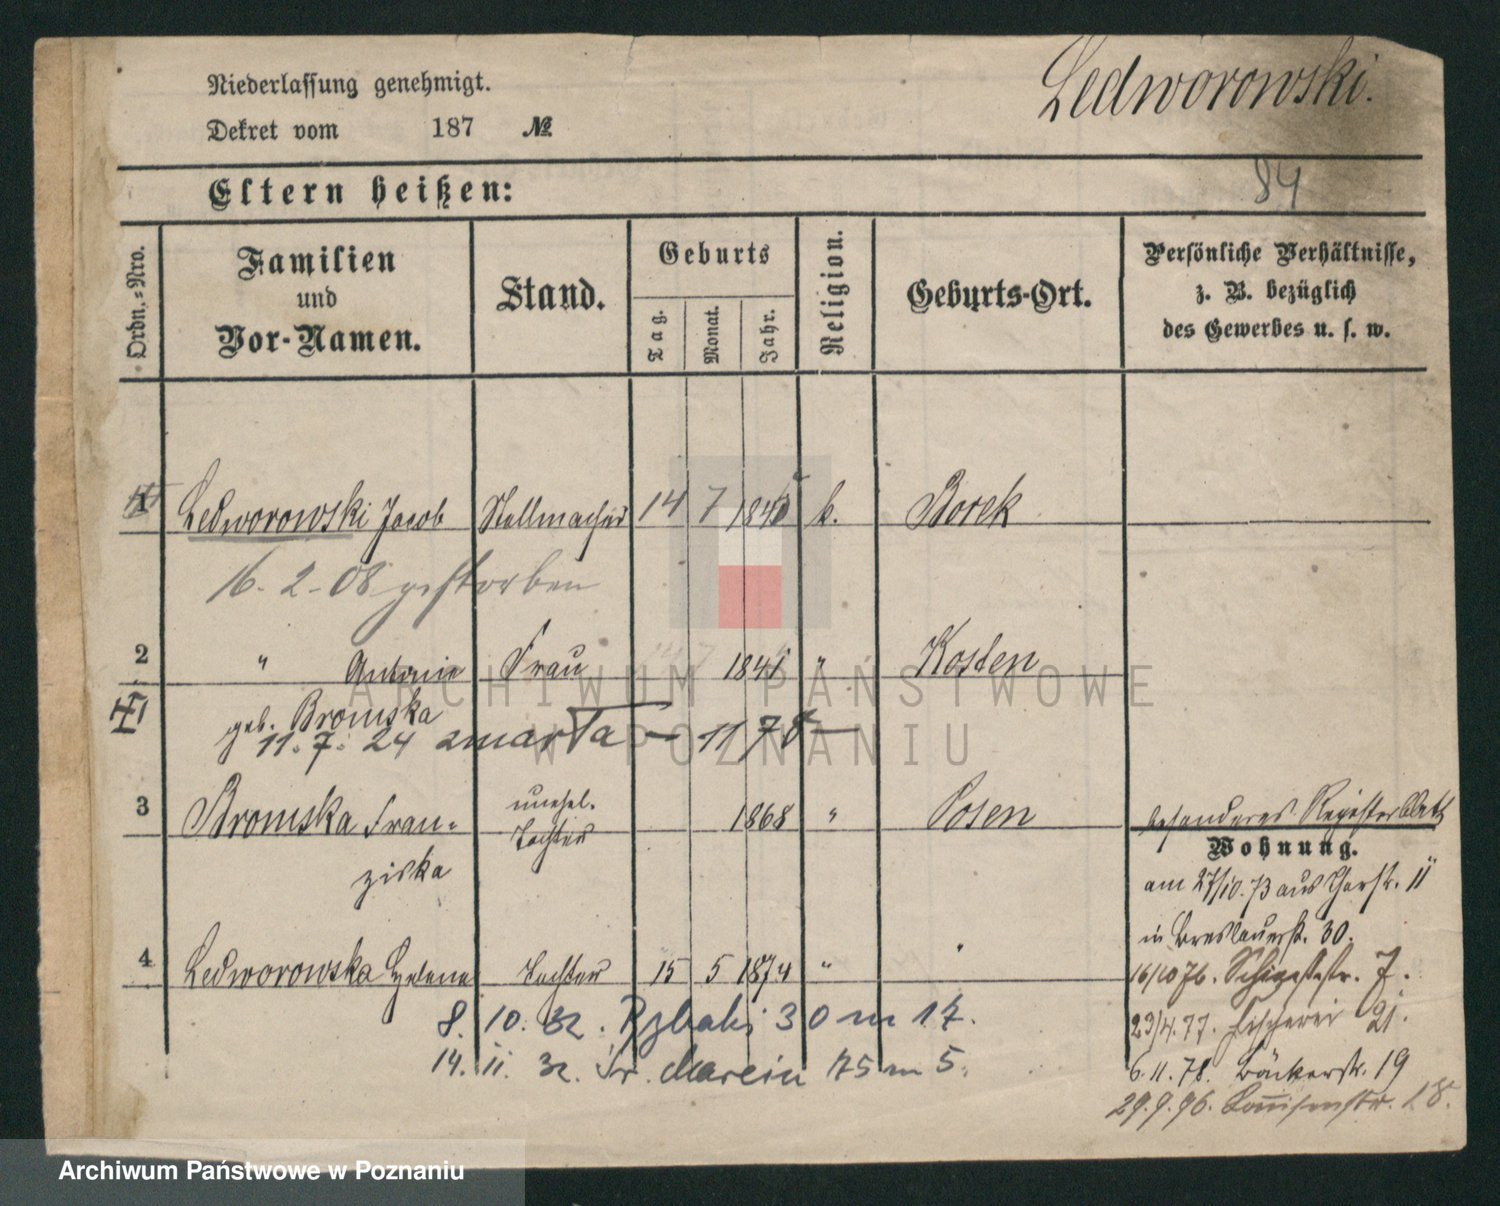 Niederlassung genehmigt.
Ledworowski.
Dekret vom 187 №
84
Eltern heißen:
Ordn.-Nro.
Familien und Vor-Namen.
Stand.
Geburts
Tag.
Monat.
Jahr.
Religion.
Geburts-Ort.
Persönliche Verhältnisse, z. B. bezüglich des Gewerbes u. s. w.
1 Ledworowski Jacob Stellmacher 14 7 k. Borek
16-2-08 gestorben
2 " Antonie Frau 1841 " Kosten
geb. Bromska
11.7.24 zmarła — 1178 —
3 Bromska Fran- unehel. Tochter 1868 " Posen besonderes Registerblatt
ziska
Wohnung.
am 27/10.73 aus 11
in Breslauerstr. 30.
4 Ledworowska Helena Tochter 15 5 1874 " "
16/10 76. Schützenstr. 7.
8. 10. 32. Rybaki 30 m 17.
23/4.77. Fischerei 21.
14. 11. 32. Św. Marcin 75 m 5.
6.11.78. Bäckerstr. 19
29.9.96. Louisenstr. 18.
ARCHIWUM PAŃSTWOWE
W POZNANIU
Archiwum Państwowe w Poznaniu